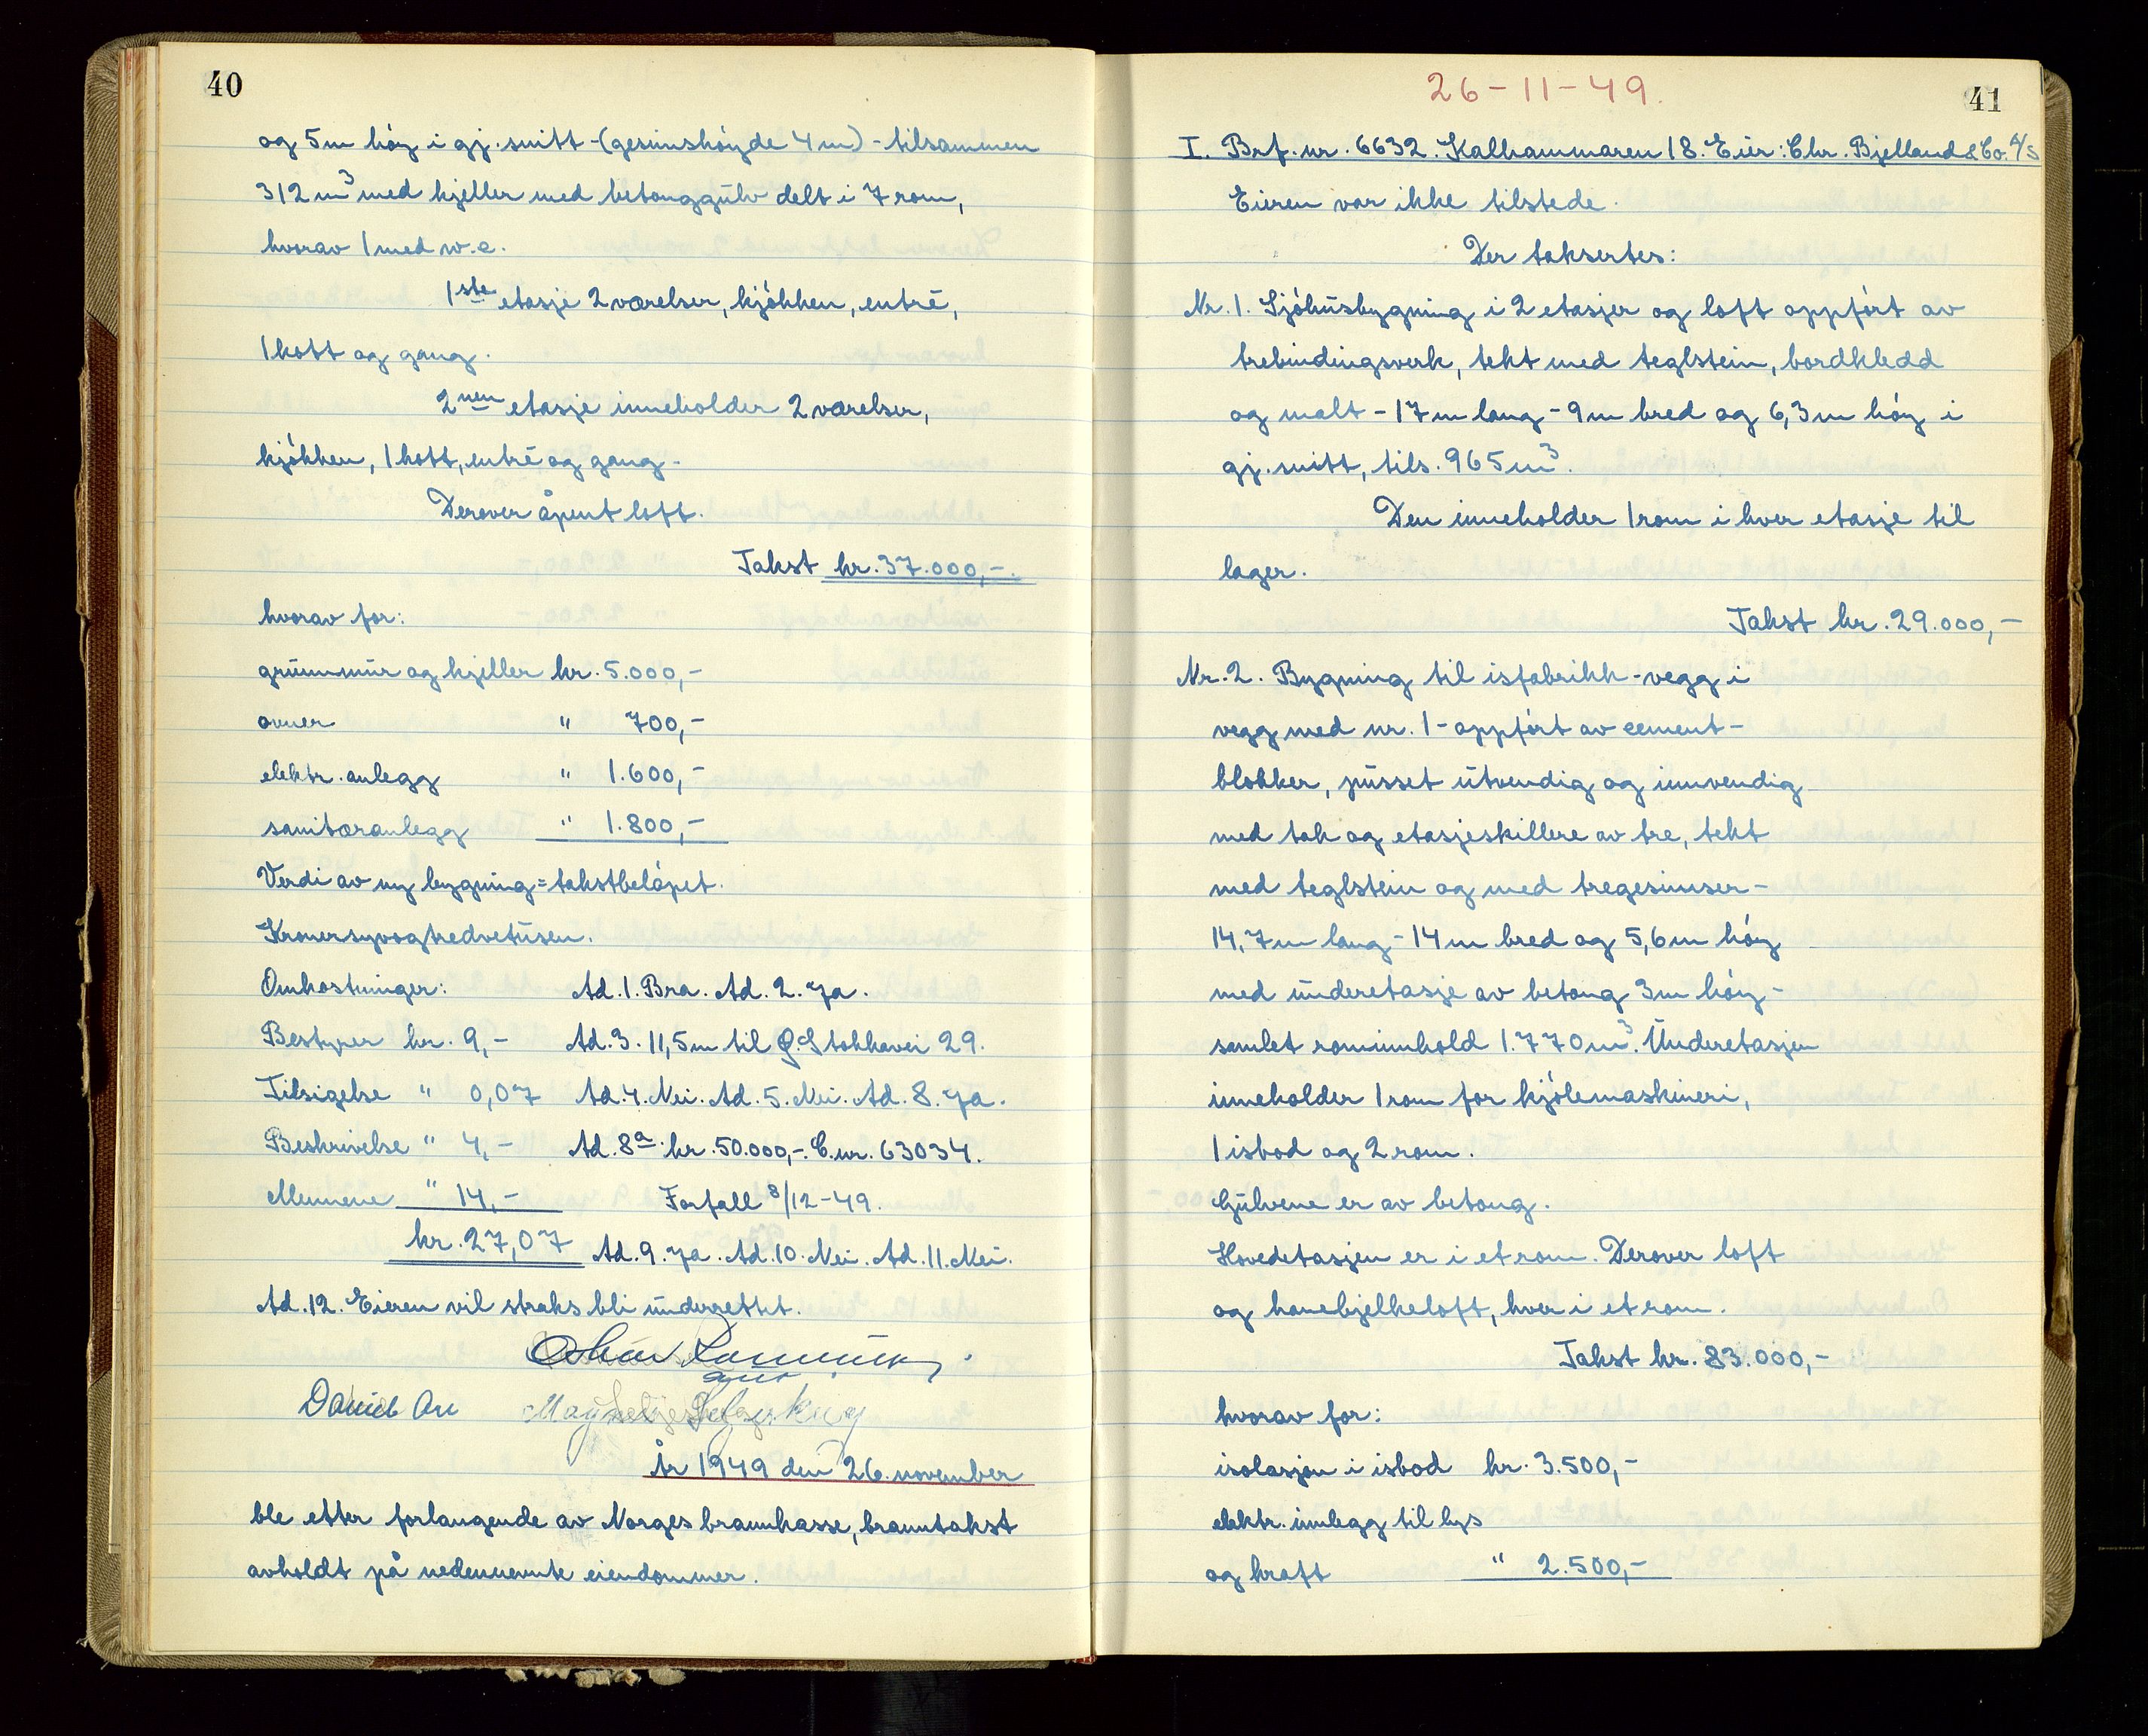 40
og 5m høy i gj.snitt - (gesimshøyde 4m) - tilsammen
312 m³ med kjeller med betonggulv delt i 7 rom,
hvorav 1 med w.c.
1ste etasje 2 værelser, kjøkken, entré,
1 kott og gang.
2nen etasje inneholder 2 værelser,
kjøkken, 1 kott, entré og gang.
Derover åpent loft.
Takst kr. 37.000,-.
hvorav for:
grunnmur og kjeller kr. 5.000,-
ovner " 700,-
elektr. anlegg " 1.600,-
sanitæranlegg " 1.800,-
Verdi av ny bygning = takstbeløpet.
Kronersyvogtredvetusen.
Omkostninger: Ad. 1. Bra. Ad. 2. Ja.
Bestyrer kr. 9,- Ad. 3. 11,5m til Ø. Stokkavei 29.
Tilsigelse " 0,07 Ad. 4. Nei. Ad. 5. Nei. Ad. 8. Ja.
Beskrivelse " 4,- Ad. 8a. kr. 50.000,-. C.nr. 63034.
Mennene " 14,- Forfall 8/12-49.
kr. 27,07 Ad. 9. Ja. Ad. 10. Nei. Ad. 11. Nei.
Ad. 12. Eieren vil straks bli underrettet.
Daniel
År 1949 den 26. november
ble etter forlangende av Norges brannkasse, branntakst
avholdt på nedennevnte eiendommer.
26-11-49.
41
I. Brf. nr. 6632. Kalhammaren 18. Eier: Chr. Bjelland & Co. A/S
Eieren var ikke tilstede.
Der taksertes:
Nr. 1. Sjøhusbygning i 2 etasjer og loft oppført av
trebindingsverk, tekt med teglstein, bordkledd
og malt - 17m lang - 9m bred og 6,3m høy i
gj.snitt, tils. 965 m³.
Den inneholder 1 rom i hver etasje til
lager.
Takst kr. 29.000,-
Nr. 2. Bygning til isfabrikk - vegg i
vegg med nr. 1 - oppført av cement-
blokker, pusset utvendig og innvendig
med tak og etasjeskillere av tre, tekt
med teglstein og med tregesimser -
14,7m lang - 14m bred og 5,6m høy
med underetasje av betong 3m høy -
samlet rominnhold 1.770m³. Underetasjen
inneholder 1 rom for kjølemaskineri,
1 isbod og 2 rom.
Gulvene er av betong.
Hovedetasjen er i et rom. Derover loft
og hanebjelkeloft, hver i et rom.
Takst kr. 83.000,-
hvorav for:
isolasjon i isbod kr. 3.500,-
elektr. innlegg til lys
og kraft " 2.500,-